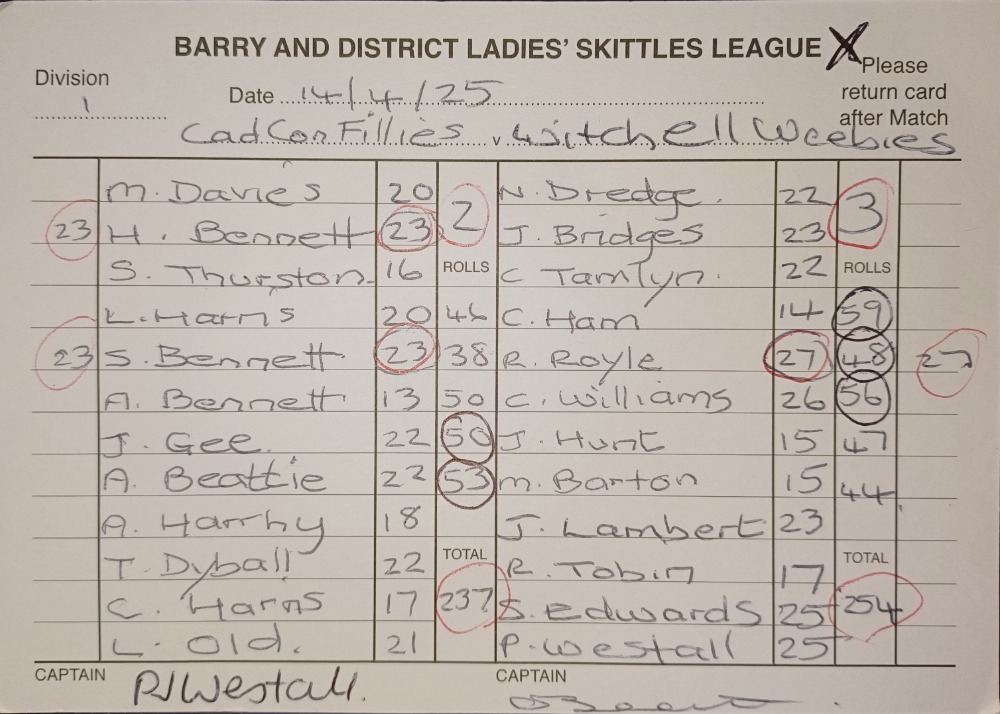 BARRY AND DISTRICT LADIES' SKITTLES LEAGUE X
Division
1
Date 14/4/25
Please
return card
after Match
CadConFillies v Witchell Weebies
M. Davies 20 2 N. Dredge. 22 3
23 H. Bennett 23 J. Bridges 23
S. Thurston 16 ROLLS C Tamlyn. 22 ROLLS
L. Harris 20 46 C. Ham 14 59
23 S. Bennett 23 38 R. Royle 27 48 27
A. Bennett 13 50 C. Williams 26 56
J. Gee. 22 50 J. Hunt 15 47
A. Beattie 22 53 M. Barton 15 44
A. Harrhy 18 J. Lambert 23
T. Dyball 22 TOTAL R. Tobin 17 TOTAL
C. Harris 17 237 S. Edwards 25 254
L. Old. 21 P. Westall 25
CAPTAIN PJWestall. CAPTAIN